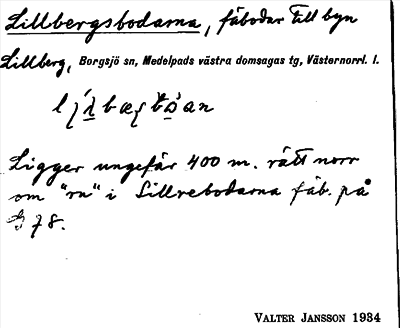 Lillbergsbodarna, fäbodar till byn
Lillberg, Borgsjö sn, Medelpads västra domsagas tg, Västernorrl. l.
Ligger ungefär 400 m. rätt norr
om "rn" i Lillrebodarna fäb. på
78.
VALTER JANSSON 1934